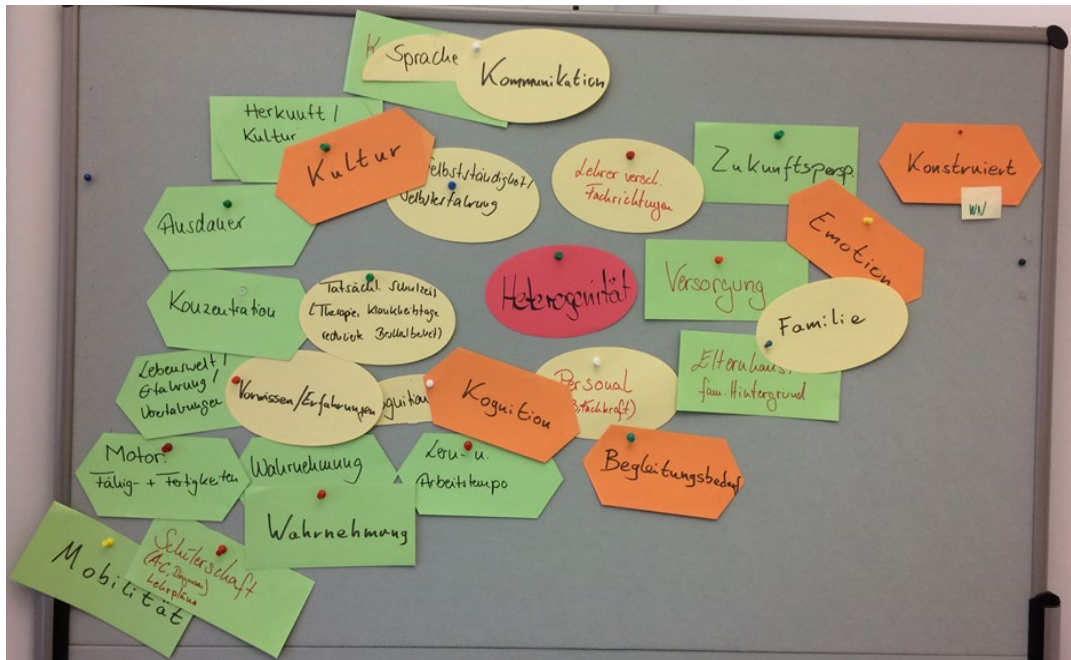 Sprache
Kommunikation
Herkunft /
Kultur
Kultur
Selbstständigkeit /
Selbsterfahrung
Lehrer versch.
Fachrichtungen
Zukunftspersp.
Konstruiert
WN
Ausdauer
Emotion
Heterogenität
Versorgung
Konzentration
Tatsächl. Schulzeit
(Therapie, Krankheitstage
reduzierte
Familie
Lebenswelt /
Erfahrung /
Vorwissen/Erfahrungen
Kognition
Personal
Fachkraft)
Elternhaus,
fam. Hintergrund
Motor.
Fähig- + Fertigkeiten
Wahrnehmung
Lern- u.
Arbeitstempo
Begleitungsbedarf
Wahrnehmung
Mobilität
Schülerschaft
Lehrpläne